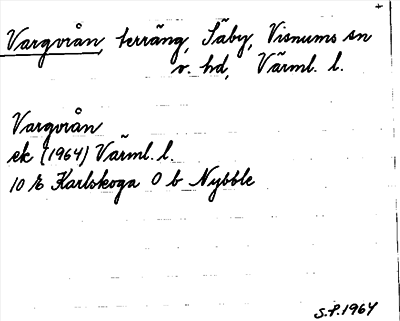 +
Vargvrån, terräng, Säby, Visnums sn
v. hd, Värml. l.
Vargvrån
ek (1964) Värml. l.
10 E Karlskoga O b Nybble
S.P. 1964